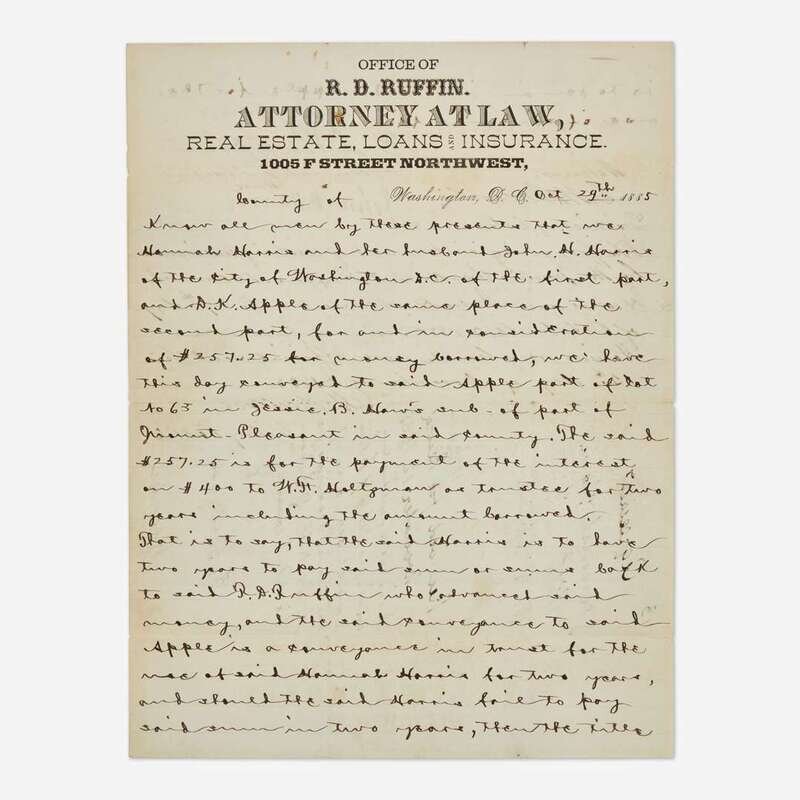 OFFICE OF
R. D. RUFFIN.
ATTORNEY AT LAW,
REAL ESTATE, LOANS AND INSURANCE.
1005 F STREET NORTHWEST,
County of Washington, D. C. Oct 29th 1885
Know all men by these presents that we
Hannah Harris and her husband John H. Harris
of the City of Washington D.C. of the first part,
and D.K. Apple of the same place of the
second part, for and in consideration
of $257.25 for money borrowed, we have
this day conveyed to said Apple part of lot
No 63 in Jessie. B. Haw's sub- of part of
Mount-Pleasant in said County. The said
$257.25 is for the payment of the interest
on $400 to W.F. Holtzman as trustee for two
years including the amount borrowed.
That is to say, that the said Harris is to have
two years to pay said sum or sums back
to said R.D. Ruffin who advanced said
money, and the said conveyance to said
Apple is a conveyance in trust for the
use of said Hannah Harris for two years,
and should the said Harris fail to pay
said sum in two years, then the title